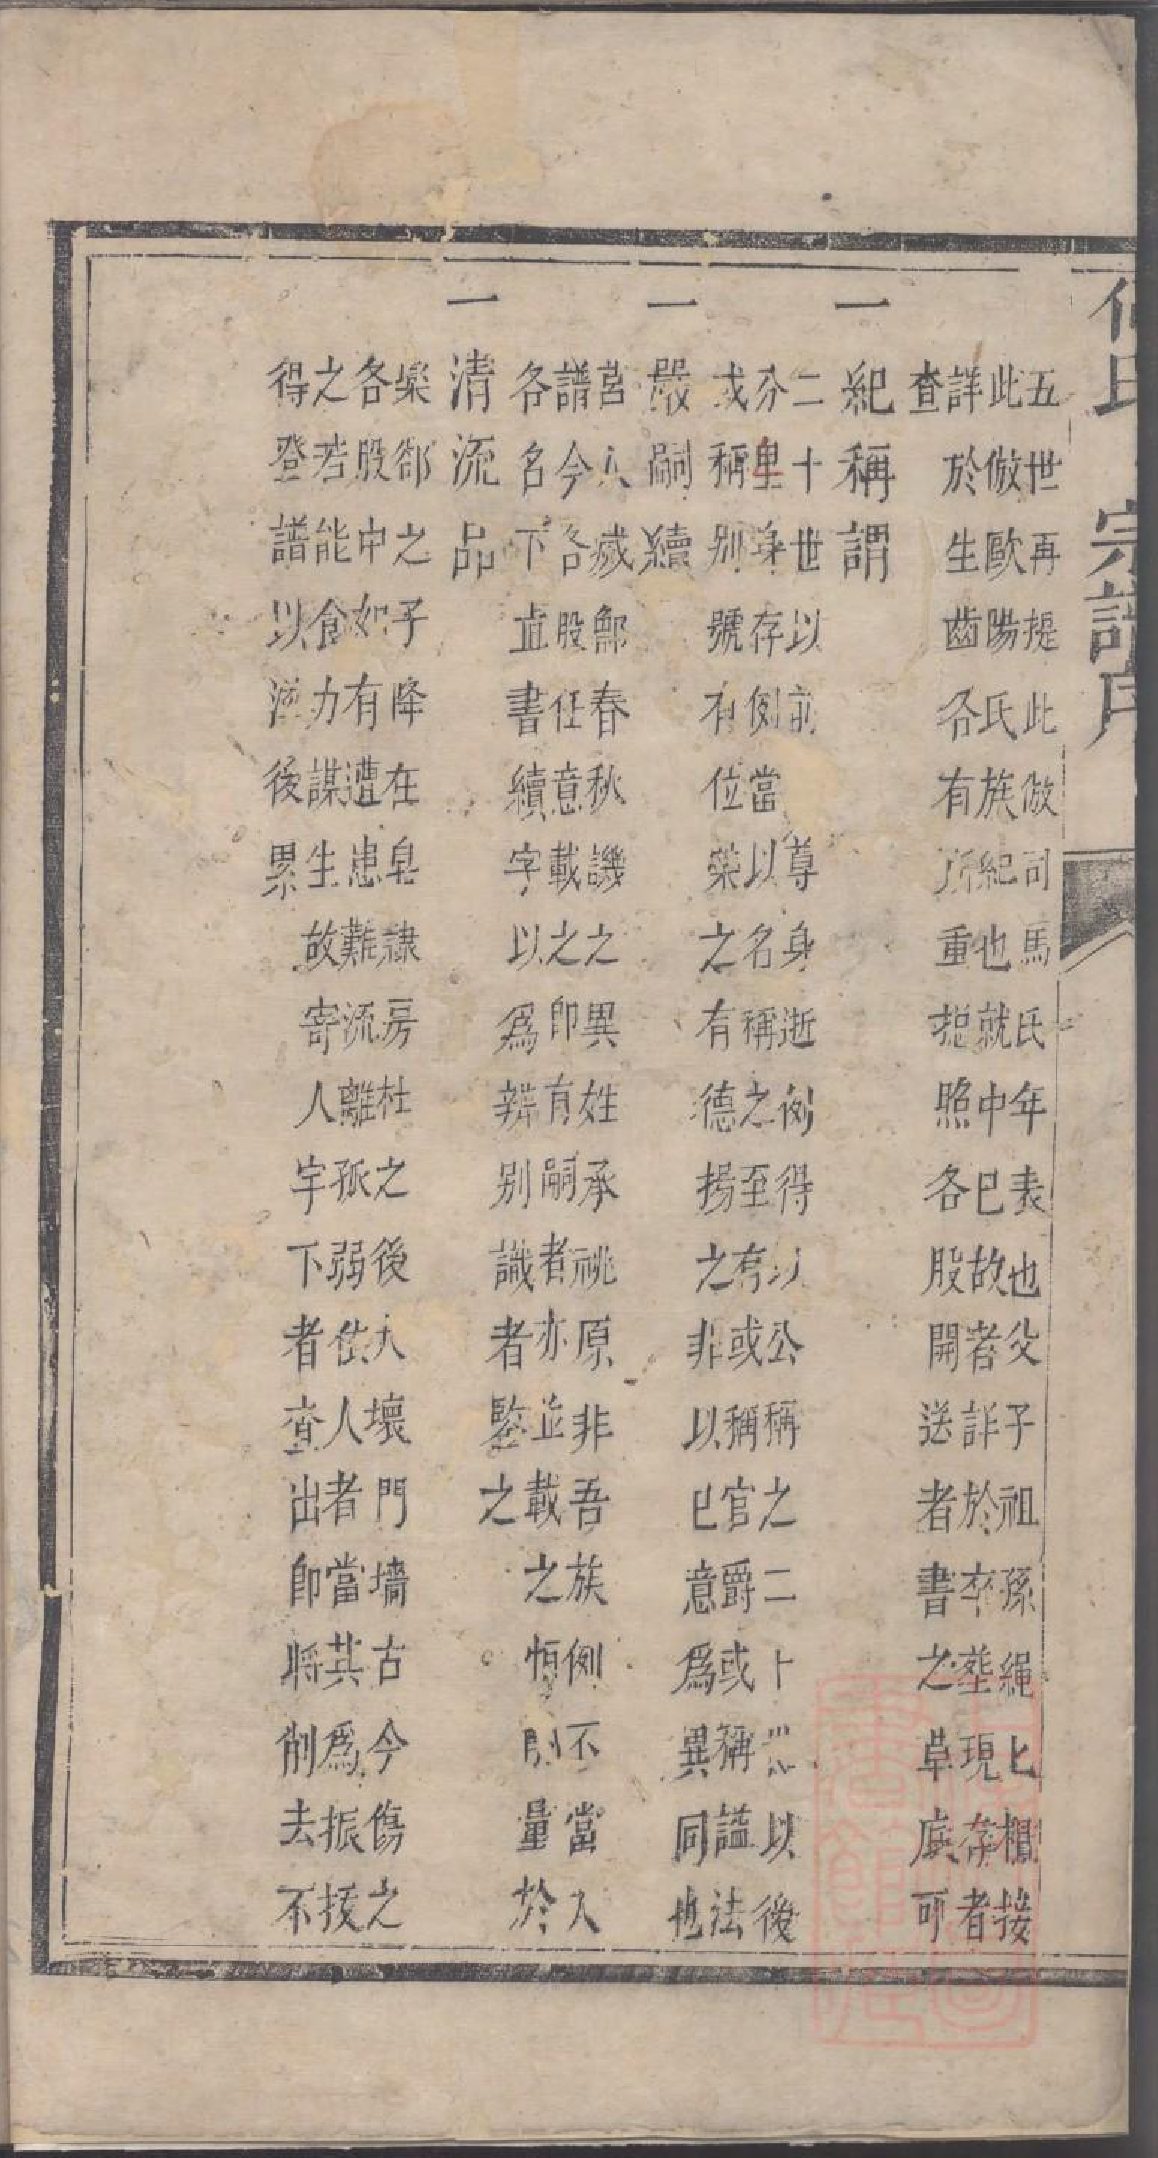 何氏宗譜序
五世再提此倣司馬氏年表也父子祖孫繩匕相接
此倣歐陽氏族紀也就中已故者詳於卒塟現存者
詳於生齒各有所重捴照各股開送者書之草底可
查
一紀稱謂
二十世以前尊身逝例得以公稱之二十世以後
分卑身存例當以名稱之至有或稱官爵或稱謚法
或稱別號有位榮之有德揚之非以已意為異同也
一嚴嗣續
莒人滅鄫春秋譏之異姓承祧原非吾族例不當入
譜今各股任意載之即有嗣者亦並載之恒則量於
各名下直書續字以為辨別識者鑒之
一清流品
欒郤之子降在皂隷房杜之後大壞門墻古今傷之
各股中如有遭患難流離孤弱仗人者當其為振拔
之若能食力謀生故寄人宇下者查出即將削去不
得登譜以滋後累